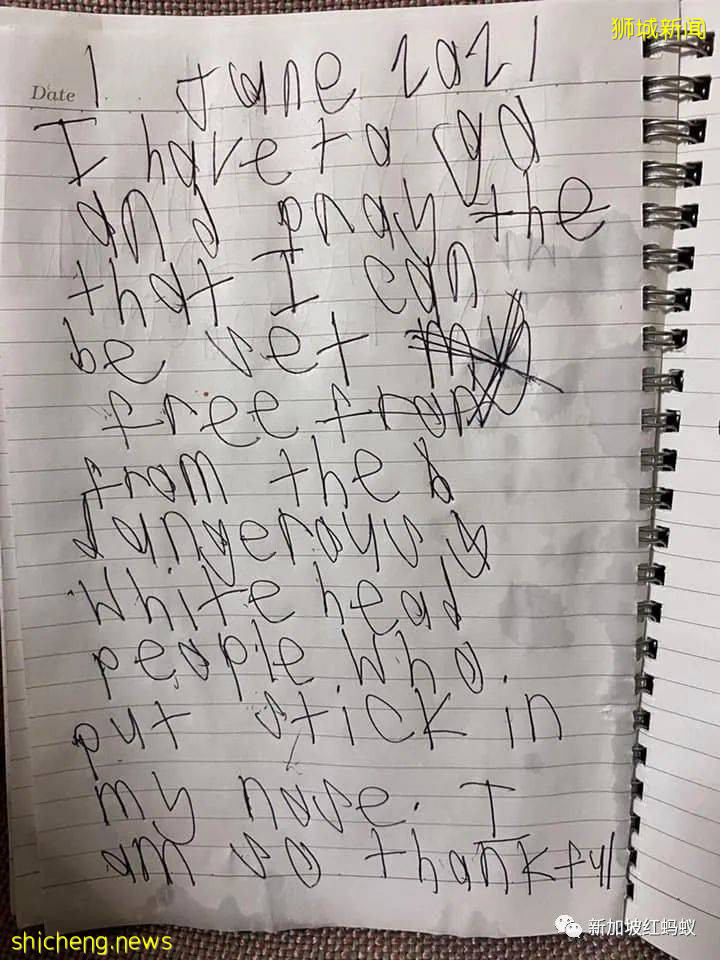 狮城新闻
Date 1 June 2021
I have to go
and pray the
that I can
be set my
free from
from the b
dangerouys y
white head
people who.
put stick in
my nose. I
am so thankful
shicheng.news
新加坡红蚂蚁